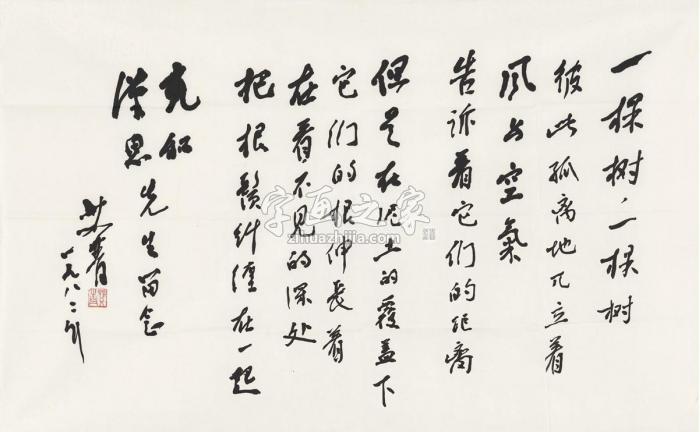 一棵树、一棵树
彼此孤离地兀立着
风与空氣
告诉着它们的距离
但是在泥土的覆盖下
它们的根伸长着
在看不见的深处
把根鬚纠缠在一起
充和
漢思
先生留念
艾青
一九八二
字画之家
zihuazhijia.com